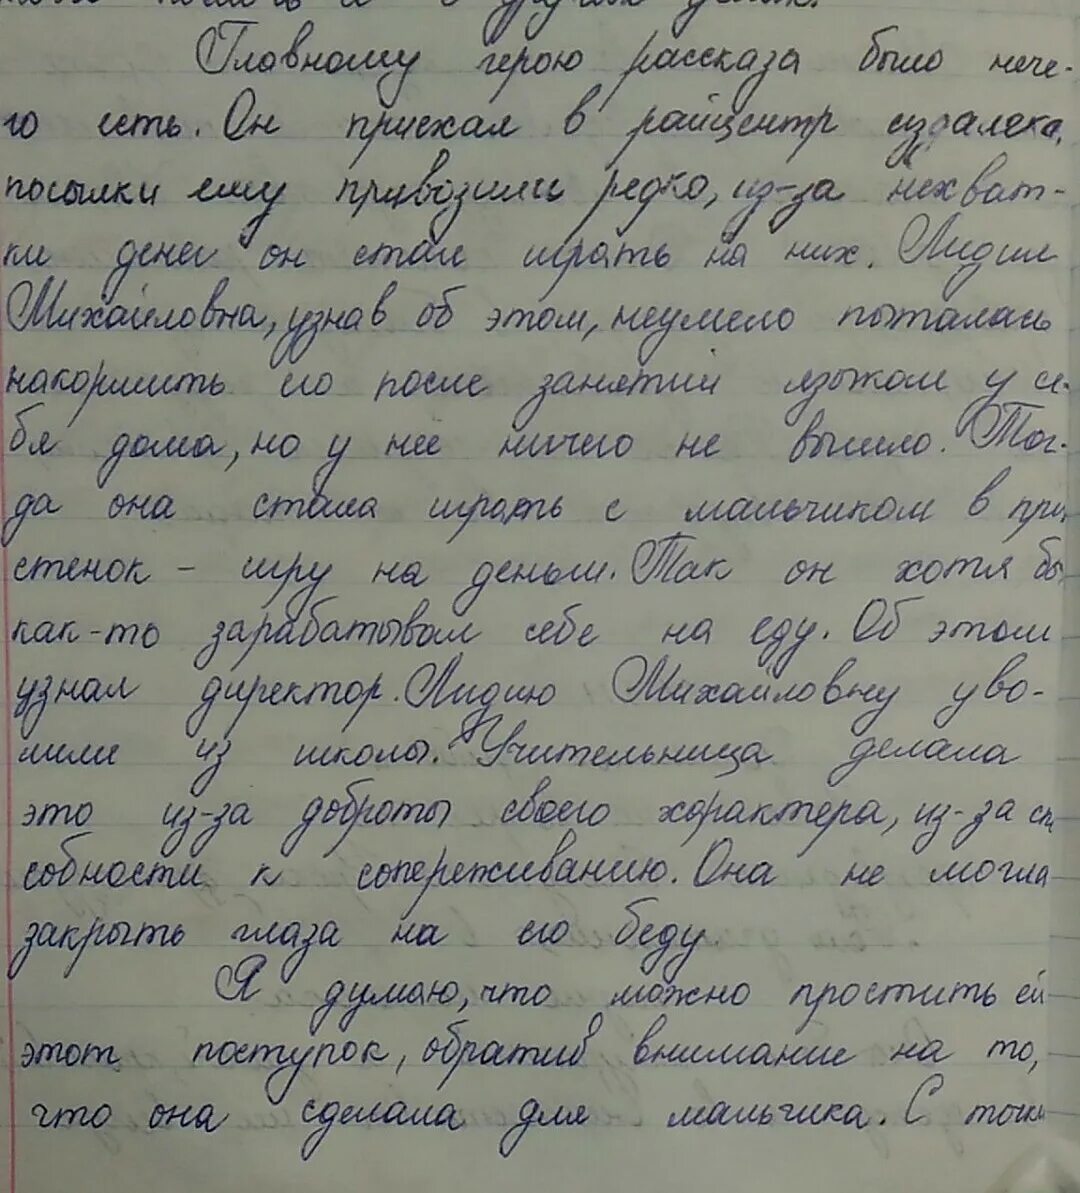 Главному герою рассказа было нече-
го есть. Он приехал в райцентр издалека,
посылки ему привозили редко, из-за нехват-
ки денег он стал играть на них. Лидия
Михайловна, узнав об этом, неумело пыталась
накормить его после занятий языком у се-
бя дома, но у неё ничего не вышло. Тог-
да она стала играть с мальчиком в при-
стенок - игру на деньги. Так он хотя бы
как-то зарабатывал себе на еду. Об этом
узнал директор. Лидию Михайловну уво-
лили из школы. Учительница делала
это из-за доброты своего характера, из-за спо
собности к сопереживанию. Она не могла
закрыть глаза на его беду
Я думаю, что можно простить ей
этот поступок, обратив внимание на то,
что она сделала для мальчика. С точки